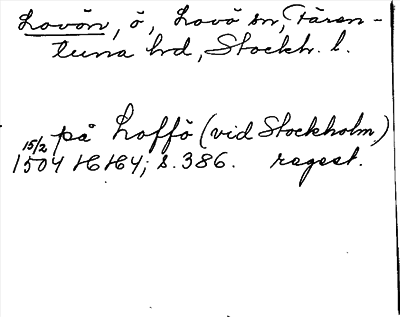 Lovön, ö, Lovö sn, Fären-
tuna hrd, Stockh. l.
på Loffö (vid Stockholm)
15/2 1504 HH4; s. 386. regest.